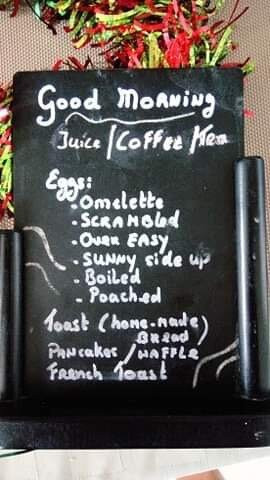 Good Morning
Juice/Coffee/Tea
Eggs:
- Omelette
- SCRAMBled
- OVER EASY
- SUNNY side up
- Boiled
- Poached
Toast (home-made
Bread)
Pancakes / WAFFLE
FRENCH Toast